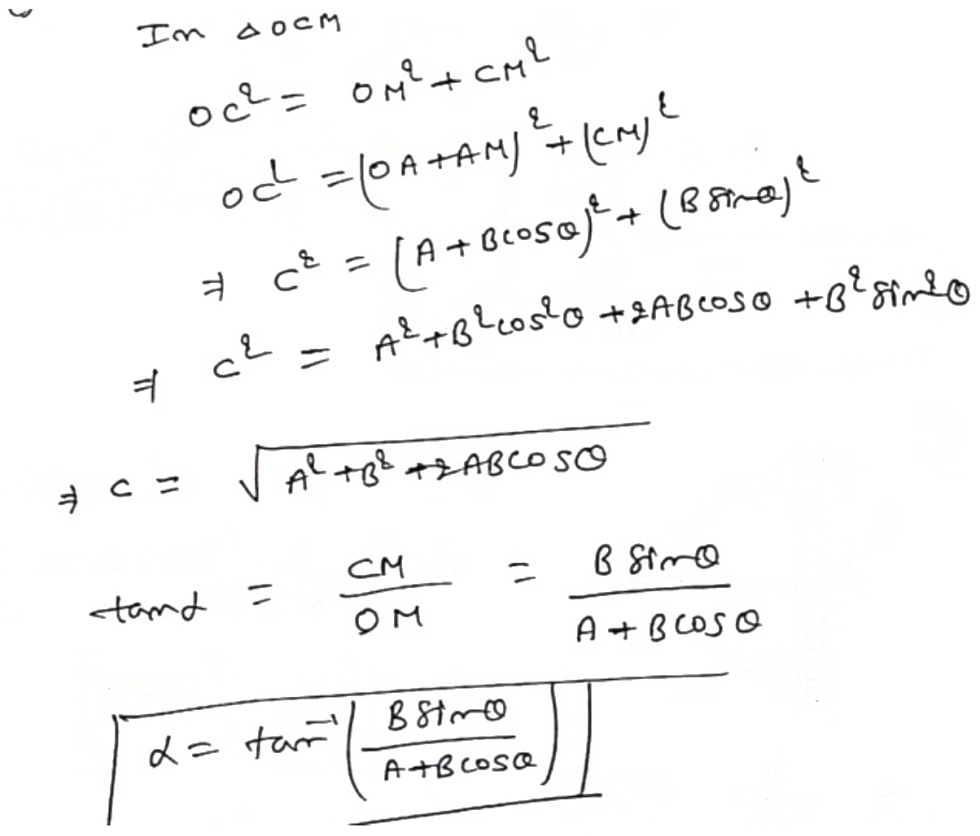 In △OCM
OC² = OM² + CM²
OC² = (OA + AM)² + (CM)²
⇒ C² = (A + Bcosθ)² + (B sinθ)²
⇒ C² = A² + B²cos²θ + 2ABcosθ + B² sin²θ
⇒ C = √(A² + B² + 2ABcosθ)
tanα = CM/OM = B sinθ/(A + Bcosθ)
α = tan⁻¹(B sinθ/(A + Bcosθ))